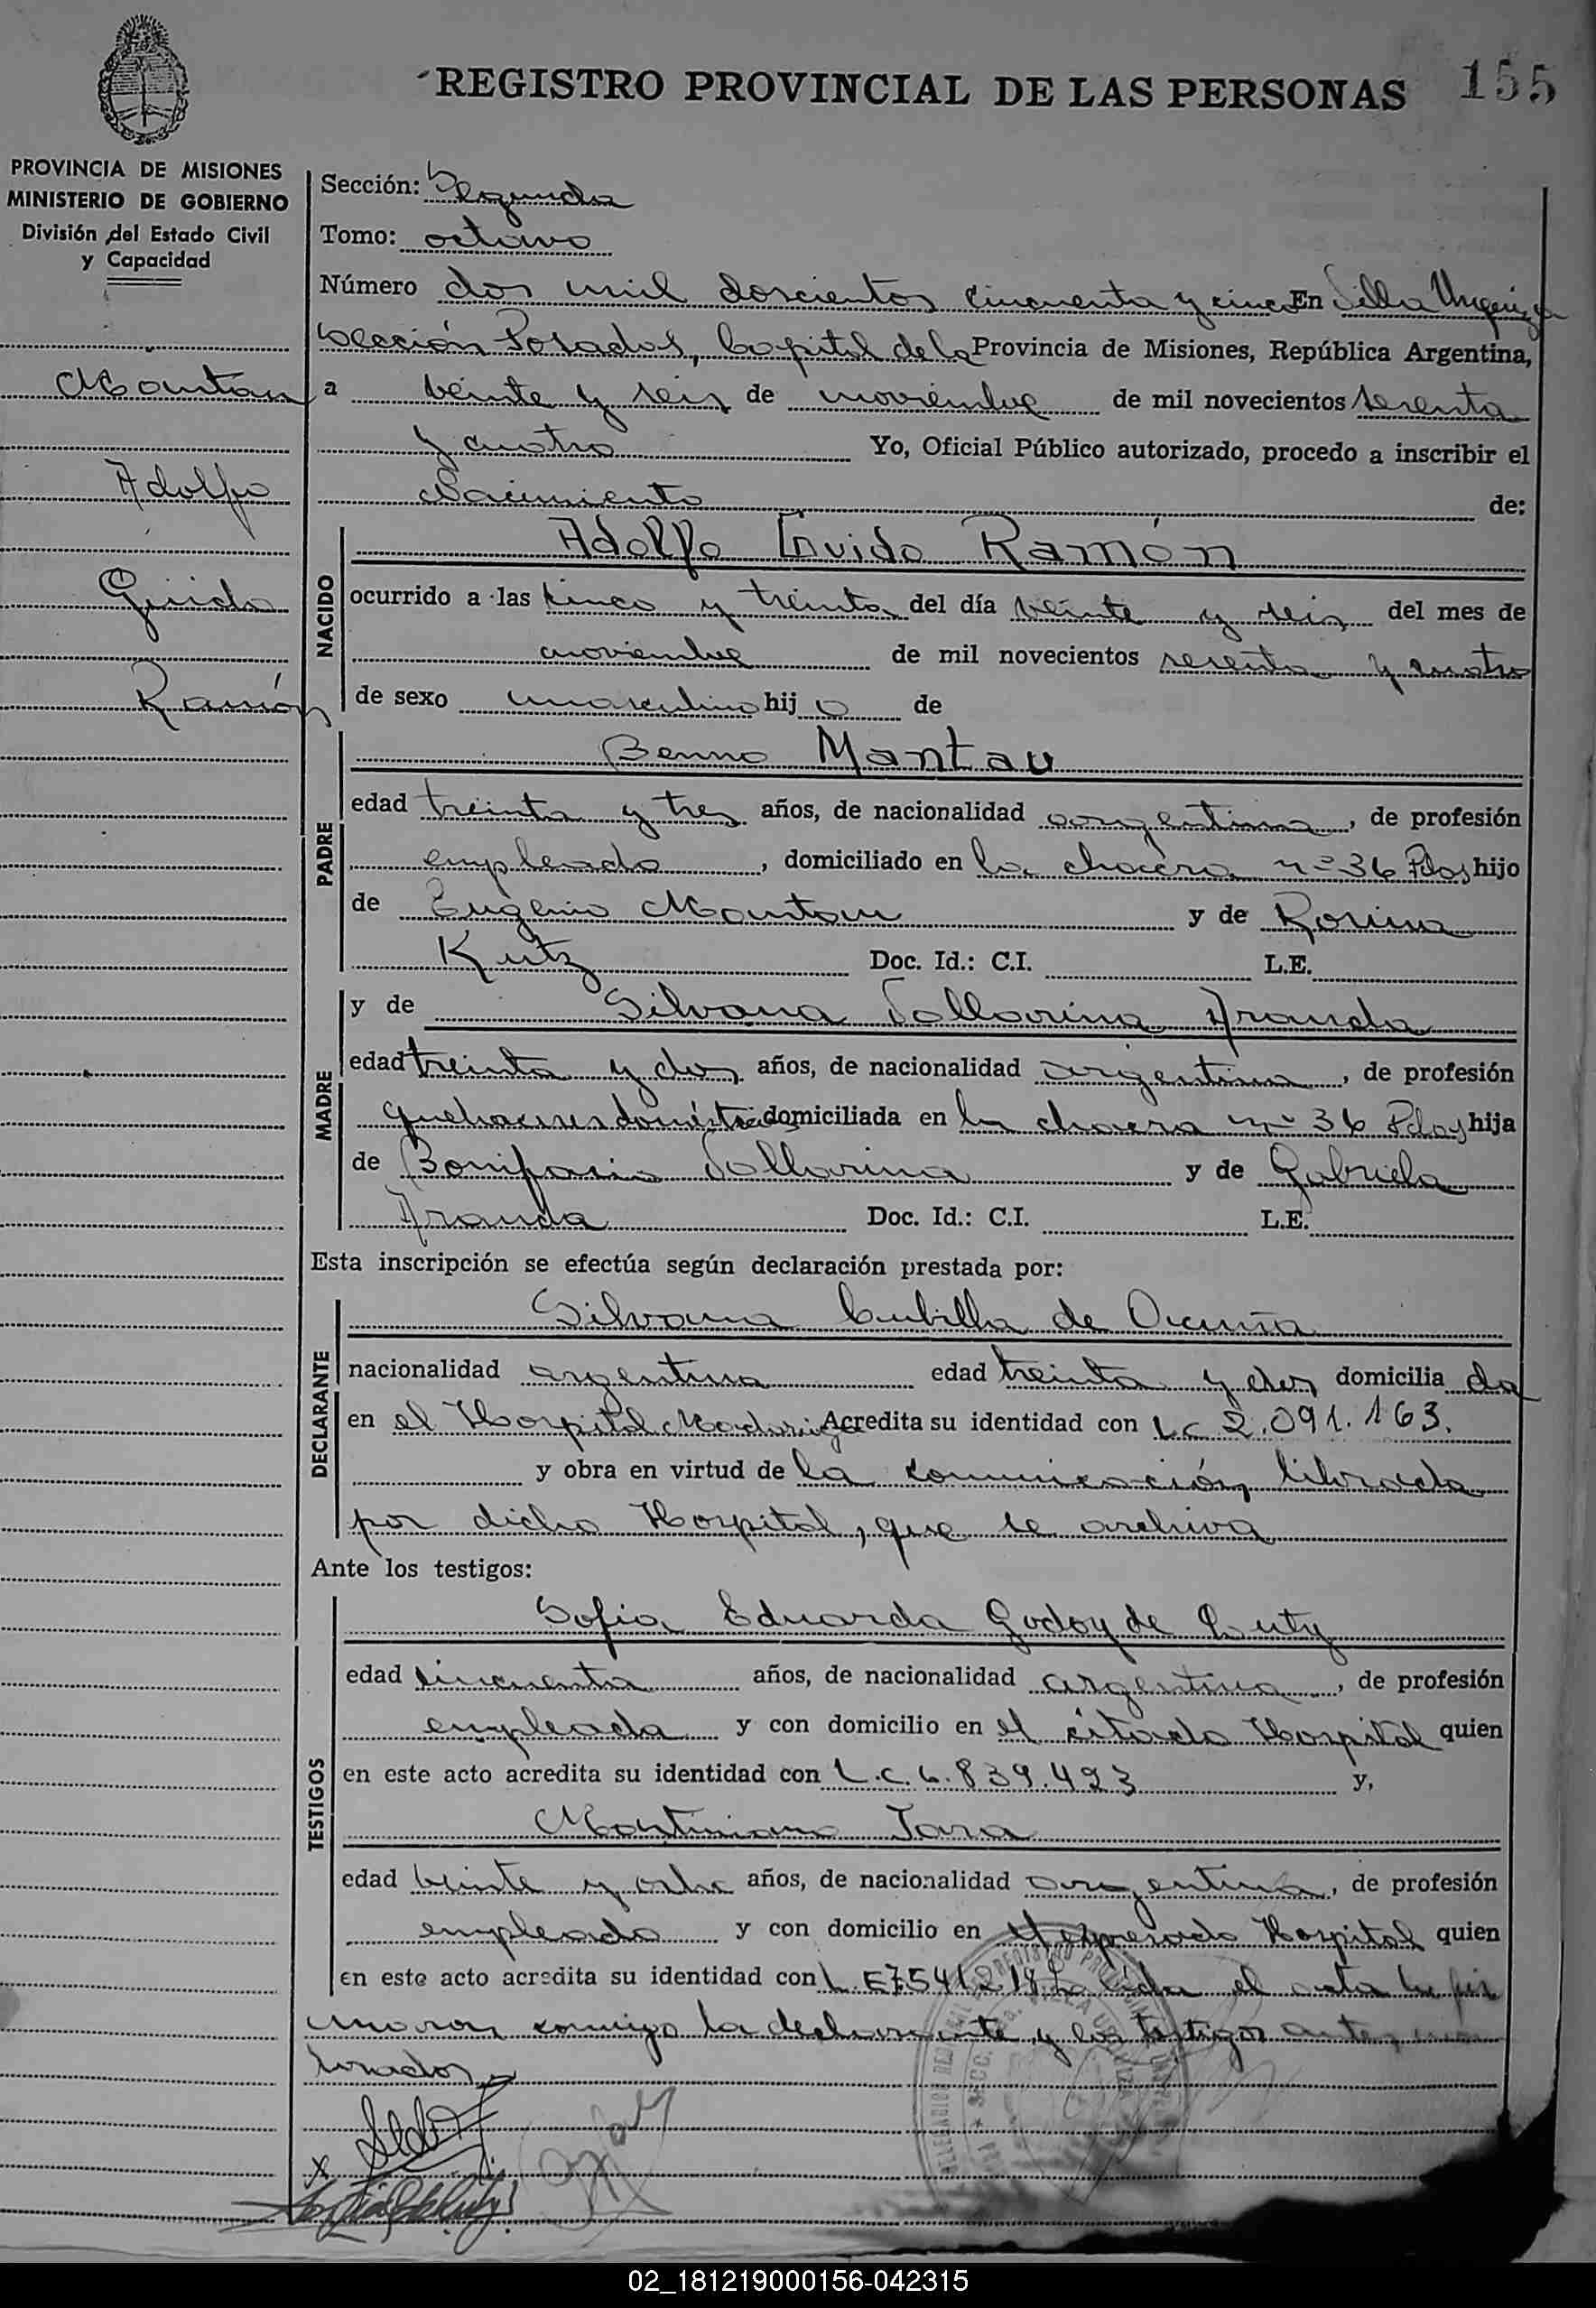 REGISTRO PROVINCIAL DE LAS PERSONAS 155
PROVINCIA DE MISIONES
MINISTERIO DE GOBIERNO
División del Estado Civil
y Capacidad
Mantau
Adolfo
Guido
Ramón
Sección: Segunda
Tomo: octavo
Número dos mil doscientos cincuenta y cinco En Villa Urquiza
Sección Posadas, Capital de la Provincia de Misiones, República Argentina,
a veinte y seis de noviembre de mil novecientos sesenta
y cuatro Yo, Oficial Público autorizado, procedo a inscribir el
Nacimiento de:
NACIDO
Adolfo Guido Ramón
ocurrido a las cinco y treinta del día veinte y seis del mes de
noviembre de mil novecientos sesenta y cuatro
de sexo masculino hij o de
PADRE
Benno Mantau
edad treinta y tres años, de nacionalidad argentina, de profesión
empleado, domiciliado en la chacra nº 36 Pdas hijo
de Eugenio Mantau y de Rosina
Kutz Doc. Id.: C.I. L.E.
MADRE
y de Silvana Aranda
edad treinta y dos años, de nacionalidad argentina, de profesión
quehaceres domésticos domiciliada en la chacra nº 36 Pdas hija
de Bonifacio y de Gabriela
Aranda Doc. Id.: C.I. L.E.
Esta inscripción se efectúa según declaración prestada por:
DECLARANTE
Silvana Cubilla de Ocuña
nacionalidad argentina edad treinta y dos domicilia da
en el Hospital Madariaga Acredita su identidad con L.C. 2.091.163.
y obra en virtud de la comunicación librada
por dicho Hospital, que se archiva
Ante los testigos:
TESTIGOS
Sofia Eduarda Godoy de
edad cincuenta años, de nacionalidad argentina, de profesión
empleada y con domicilio en el citado Hospital quien
en este acto acredita su identidad con L.C. 6.839.423 y,
Martiniano Jara
edad veinte y ocho años, de nacionalidad argentina, de profesión
empleado y con domicilio en el expresado Hospital quien
en este acto acredita su identidad con L.E. Leida el acta la fir
maron conmigo la declarante y los testigos antes men
cionados
02_181219000156-042315